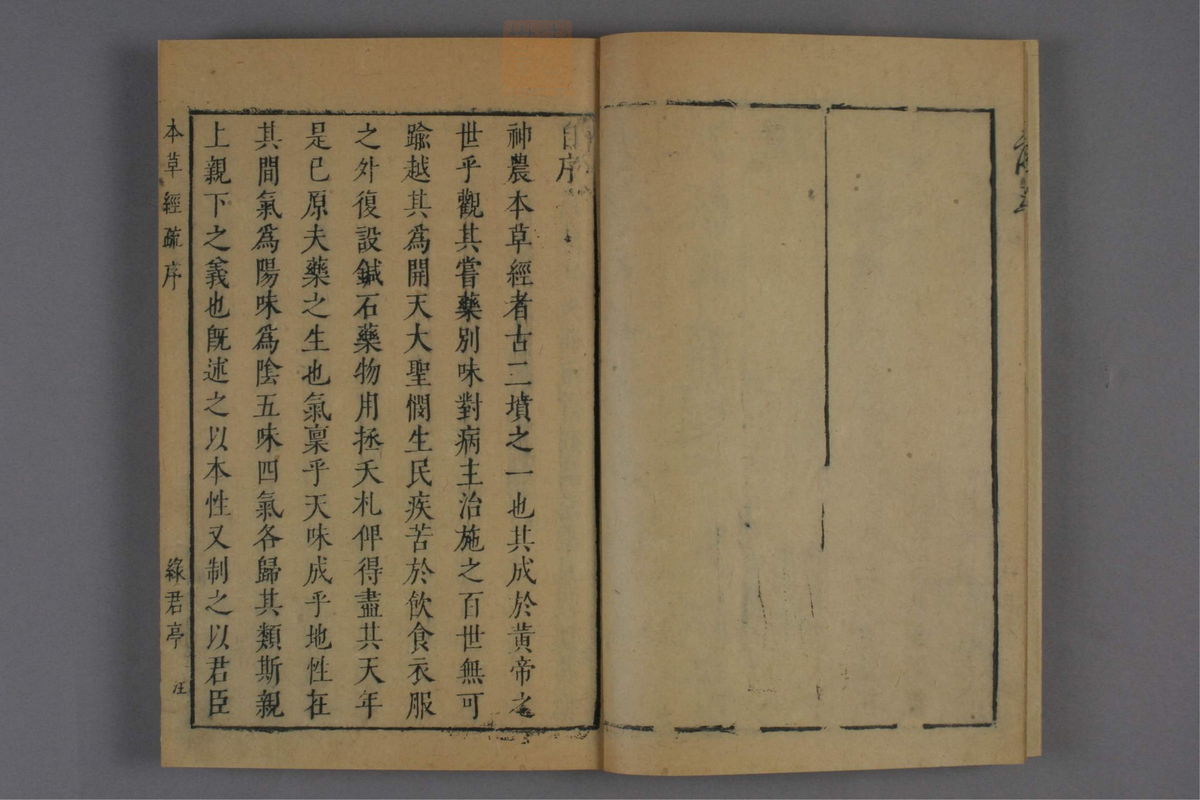 自序
神農本草經者古三墳之一也其成於黃帝之
世乎觀其嘗藥別味對病主治施之百世無可
踰越其為開天大聖憫生民疾苦於飲食衣服
之外復設鍼石藥物用拯夭札俾得盡其天年
是已原夫藥之生也氣稟乎天味成乎地性在
其間氣為陽味為陰五味四氣各歸其類斯親
上親下之義也旣述之以本性又制之以君臣
本草經疏序
綠君亭